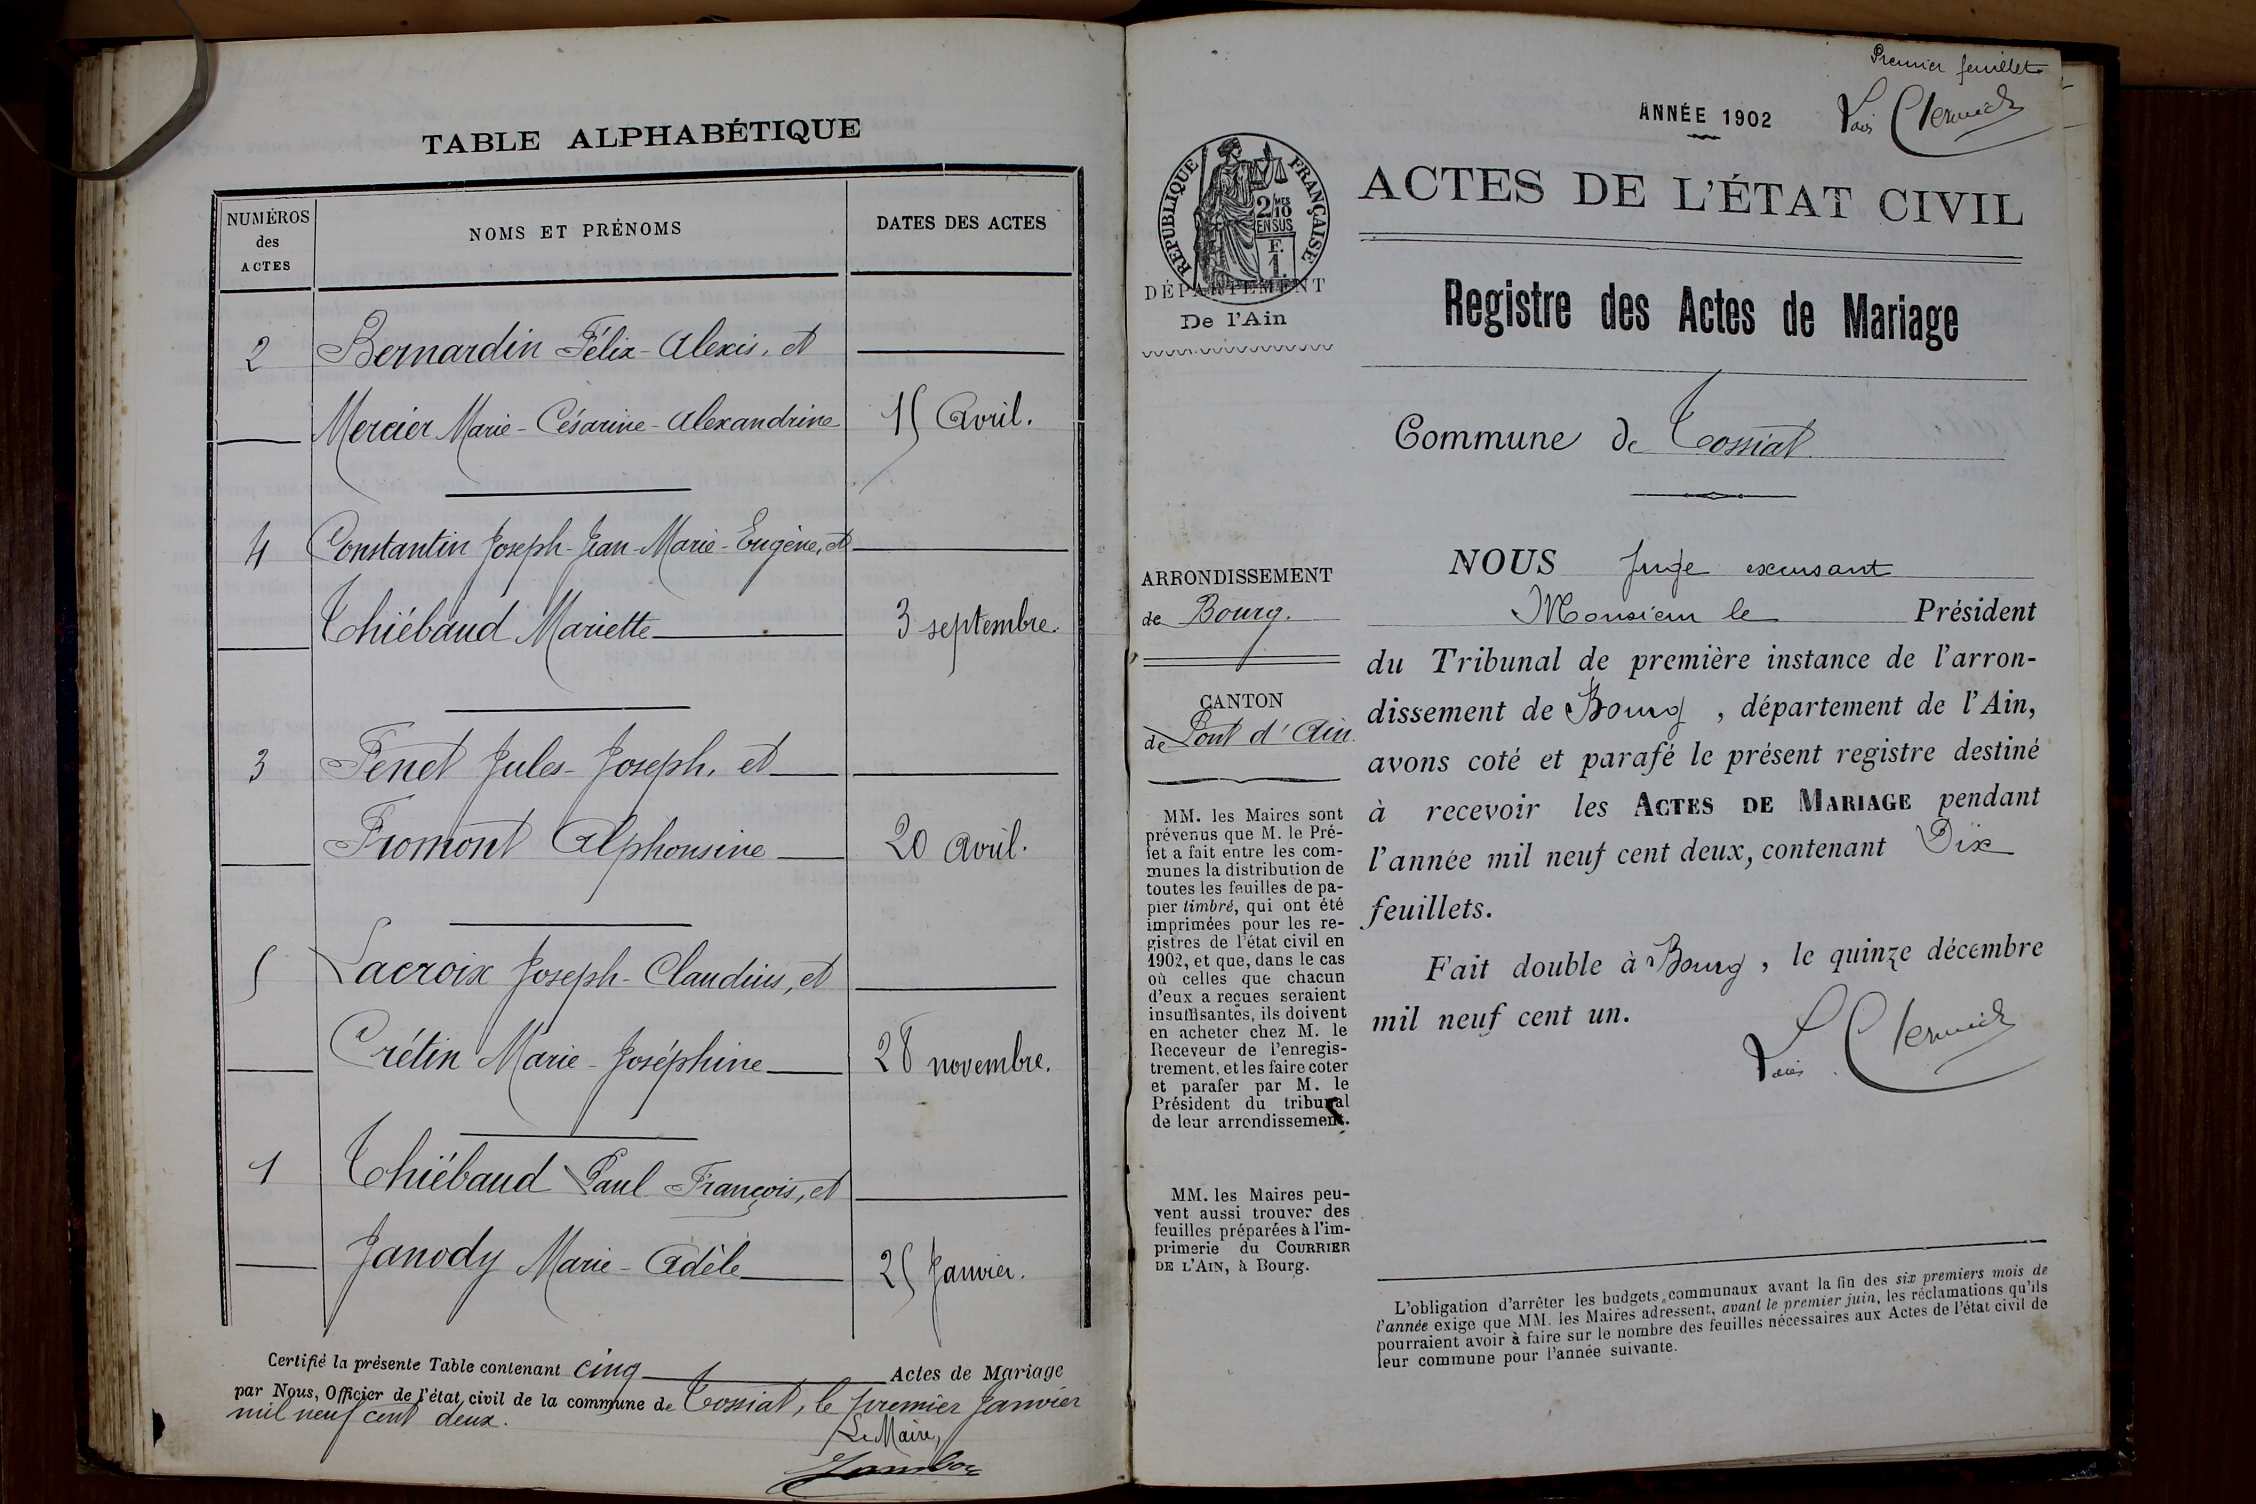 TABLE ALPHABÉTIQUE
NUMÉROS
des
ACTES
NOMS ET PRÉNOMS
DATES DES ACTES
2 Bernardin Félix-Alexis, et
Mercier Marie-Césarine-Alexandrine 15 Avril.
4 Constantin Joseph-Jean-Marie-Eugène, et
Thiébaud Mariette 3 septembre.
3 Fenet Jules-Joseph, et
Fromont Alphonsine 20 avril.
5 Lacroix Joseph-Claudius, et
Crétin Marie-Joséphine 28 novembre.
1 Thiébaud Paul François, et
Janody Marie-Adèle 25 Janvier.
Certifié la présente Table contenant cinq Actes de Mariage
par Nous, Officier de l'état civil de la commune de Tossiat, le premier Janvier
mil neuf cent deux.
Le Maire,
Premier feuillet
ANNÉE 1902
RÉPUBLIQUE FRANÇAISE
2/10 MES
EN SUS
F.
1.
DÉPARTEMENT
De l'Ain
ACTES DE L'ÉTAT CIVIL
Registre des Actes de Mariage
Commune de Tossiat
ARRONDISSEMENT
de Bourg.
CANTON
de Pont d'Ain
MM. les Maires sont
prévenus que M. le Pré-
fet a fait entre les com-
munes la distribution de
toutes les feuilles de pa-
pier timbré, qui ont été
imprimées pour les re-
gistres de l'état civil en
1902, et que, dans le cas
où celles que chacun
d'eux a reçues seraient
insuffisantes, ils doivent
en acheter chez M. le
Receveur de l'enregis-
trement, et les faire coter
et parafer par M. le
Président du tribunal
de leur arrondissement.
MM. les Maires peu-
vent aussi trouver des
feuilles préparées à l'im-
primerie du COURRIER
DE L'AIN, à Bourg.
NOUS Juge excusant
Monsieur le Président
du Tribunal de première instance de l'arron-
dissement de Bourg, département de l'Ain,
avons coté et parafé le présent registre destiné
à recevoir les ACTES DE MARIAGE pendant
l'année mil neuf cent deux, contenant Dix
feuillets.
Fait double à Bourg, le quinze décembre
mil neuf cent un.
L'obligation d'arrêter les budgets communaux avant la fin des six premiers mois de
l'année exige que MM. les Maires adressent, avant le premier juin, les réclamations qu'ils
pourraient avoir à faire sur le nombre des feuilles nécessaires aux Actes de l'état civil de
leur commune pour l'année suivante.